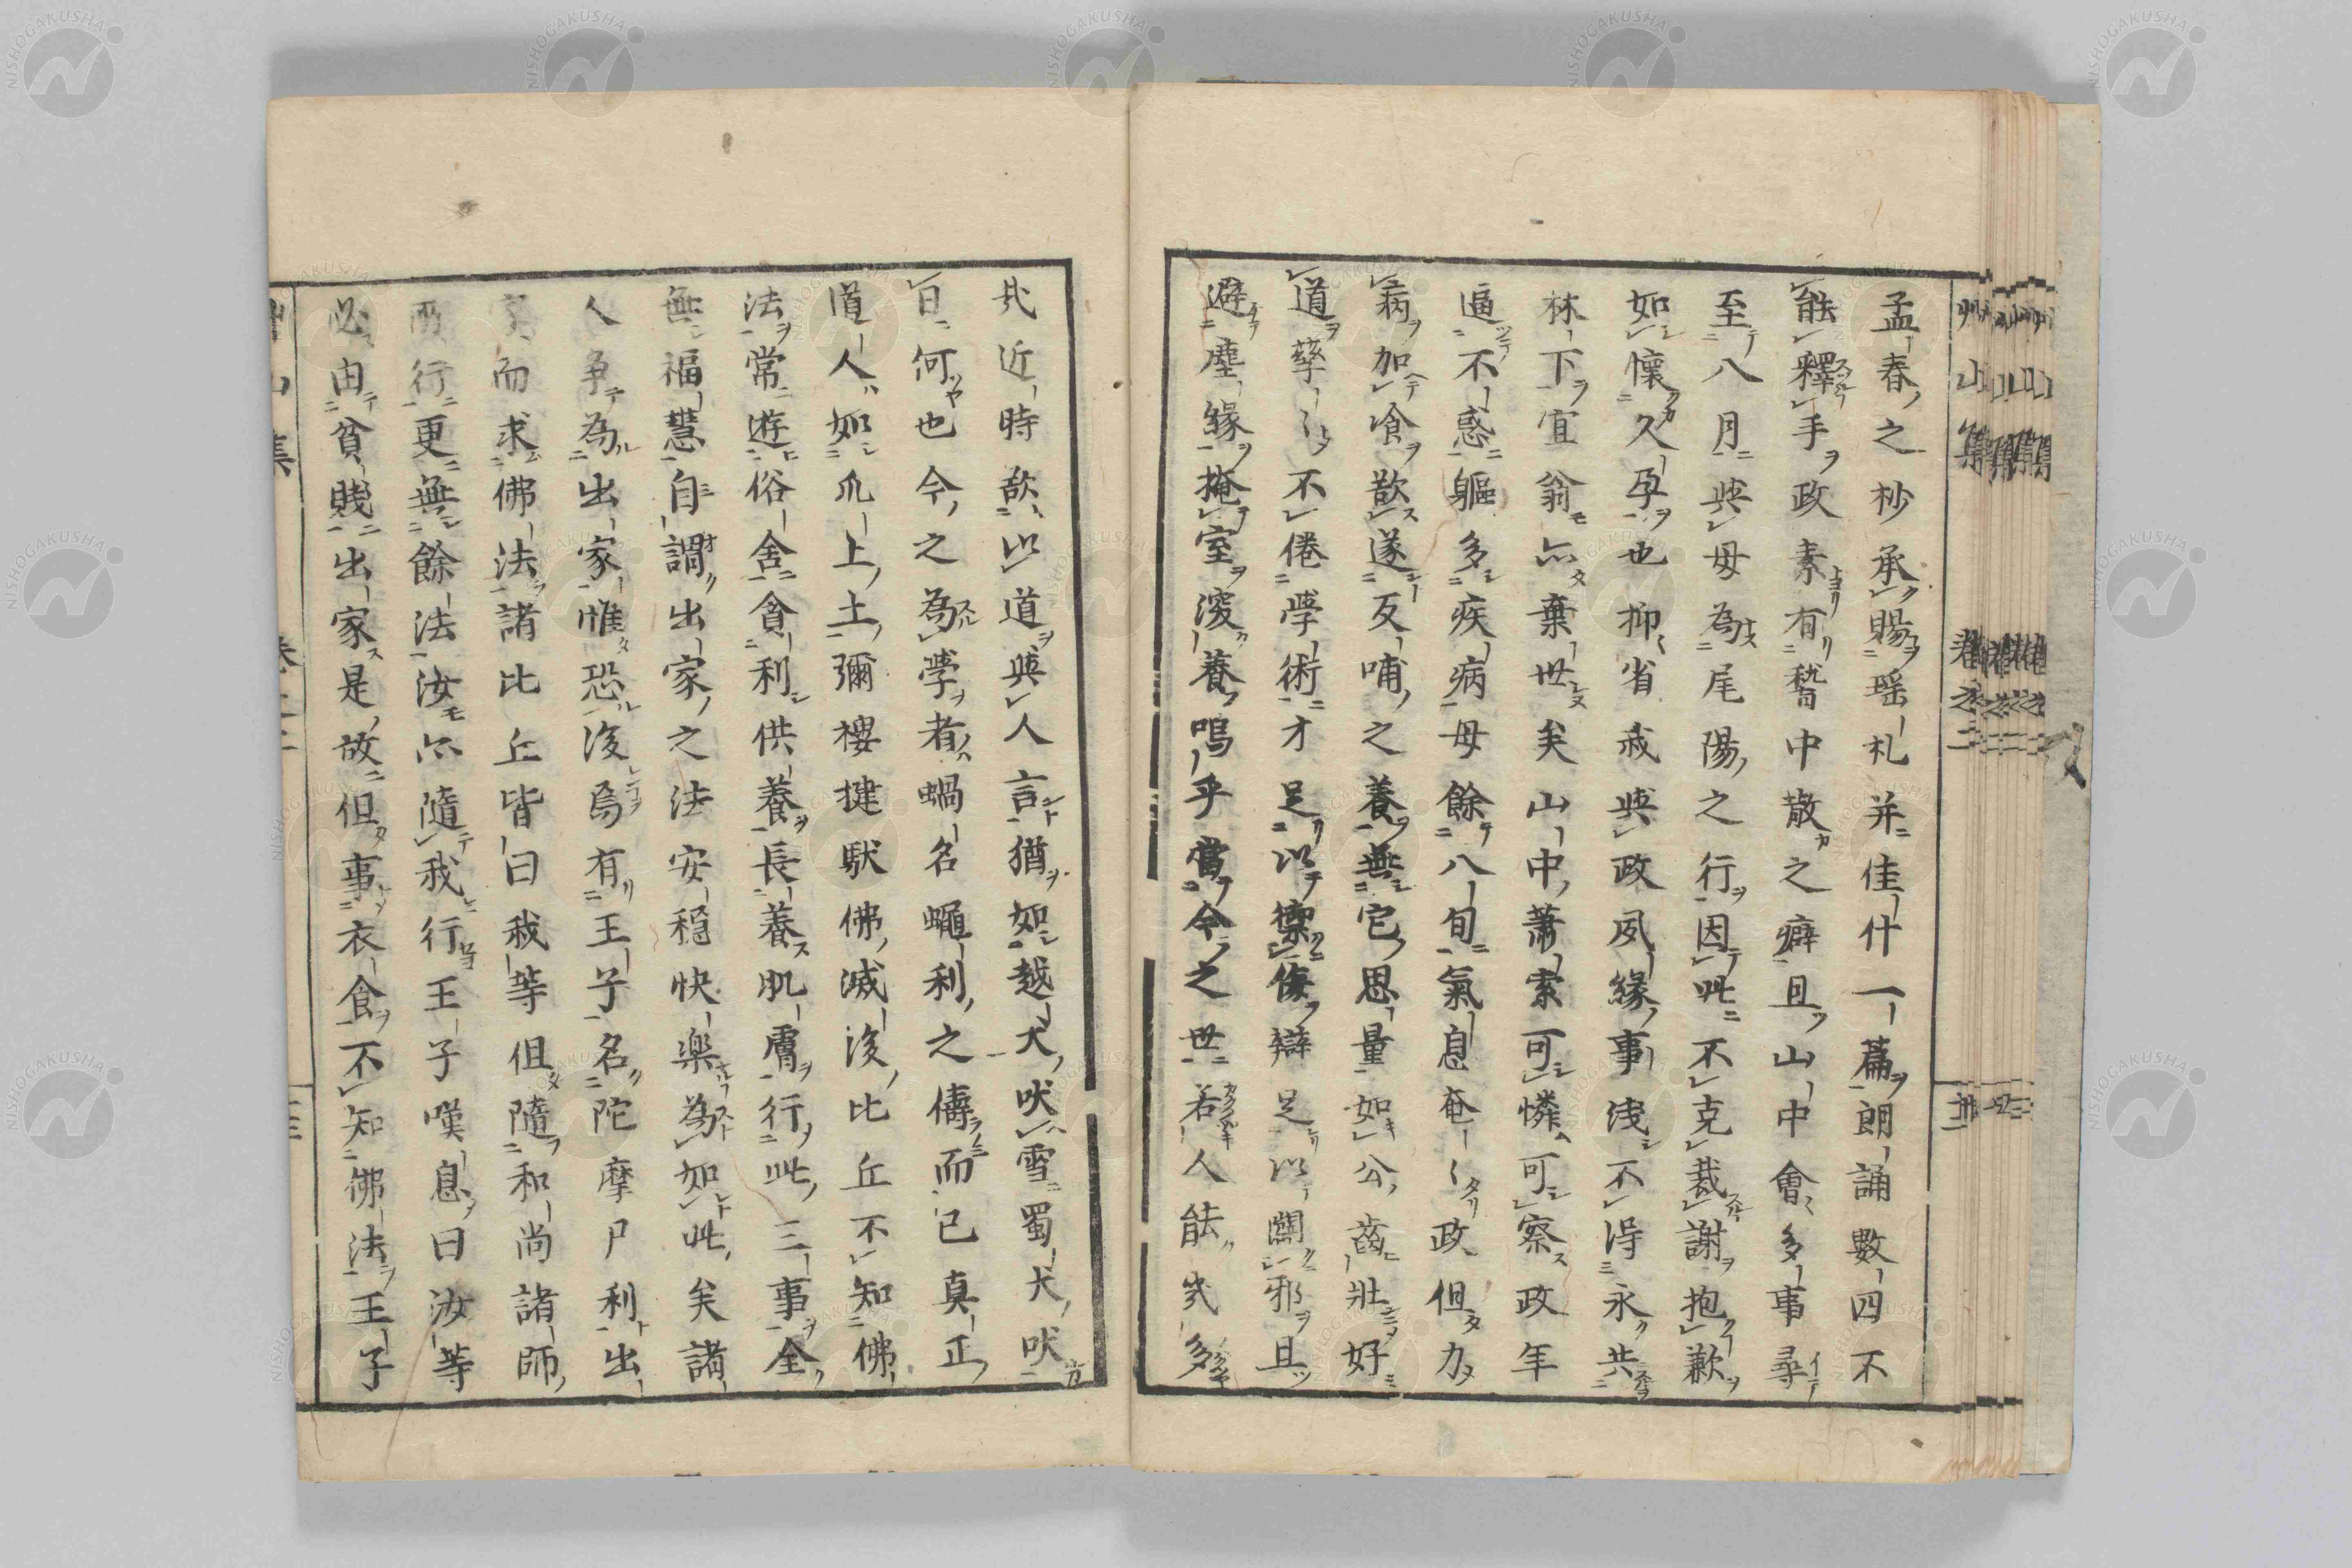 孟春之杪承賜瑶札并佳什一篇朗誦數四不
能釋手政素有嵆中散之癖且山中會多事尋
至八月與母為尾陽之行因此不克裁謝抱歉
如懷久孕也抑省我與政夙緣事淺不得永共
林下宜翁亦棄世矣山中蕭索可憐可察政年
逼不惑軀多疾病母餘八旬氣息奄〻政但力
病加飡歠遂反哺之養無它思量如公齒壯好
道孳〻不倦學術才足以禦侮辯足以闢邪且
避塵緣掩室深養嗚乎當今之世若人能幾多
哉近時欲以道與人言猶如越犬吠雪蜀犬吠
日何也今之為學者蝸名蠅利之儔而已真正
道人如爪上土彌樓揵馱佛滅後比丘不知佛
法常遊俗舍貪利供養長養肌膚行此三事全
無福慧自謂出家之法安穩快樂為如此矣諸
人爭為出家惟恐後焉有王子名陀摩尸利出
家而求佛法諸比丘皆曰我等但隨和尚諸師
所行更無餘法汝亦隨我行王子嘆息曰汝等
必由貧賤出家是故但事衣食不知佛法王子
艸山集 卷之二
NISHOGAKUSHA